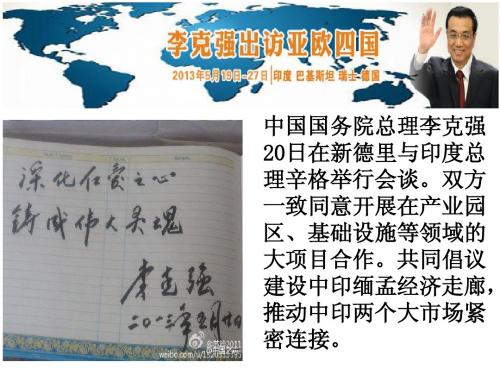 李克强出访亚欧四国
2013年5月19日-27日 | 印度 巴基斯坦 瑞士 德国
中国国务院总理李克强
20日在新德里与印度总
理辛格举行会谈。双方
一致同意开展在产业园
区、基础设施等领域的
大项目合作。共同倡议
建设中印缅孟经济走廊，
推动中印两个大市场紧
密连接。
深化仁爱之心
铸成伟大灵魂
李克强
二〇一三年五月廿日